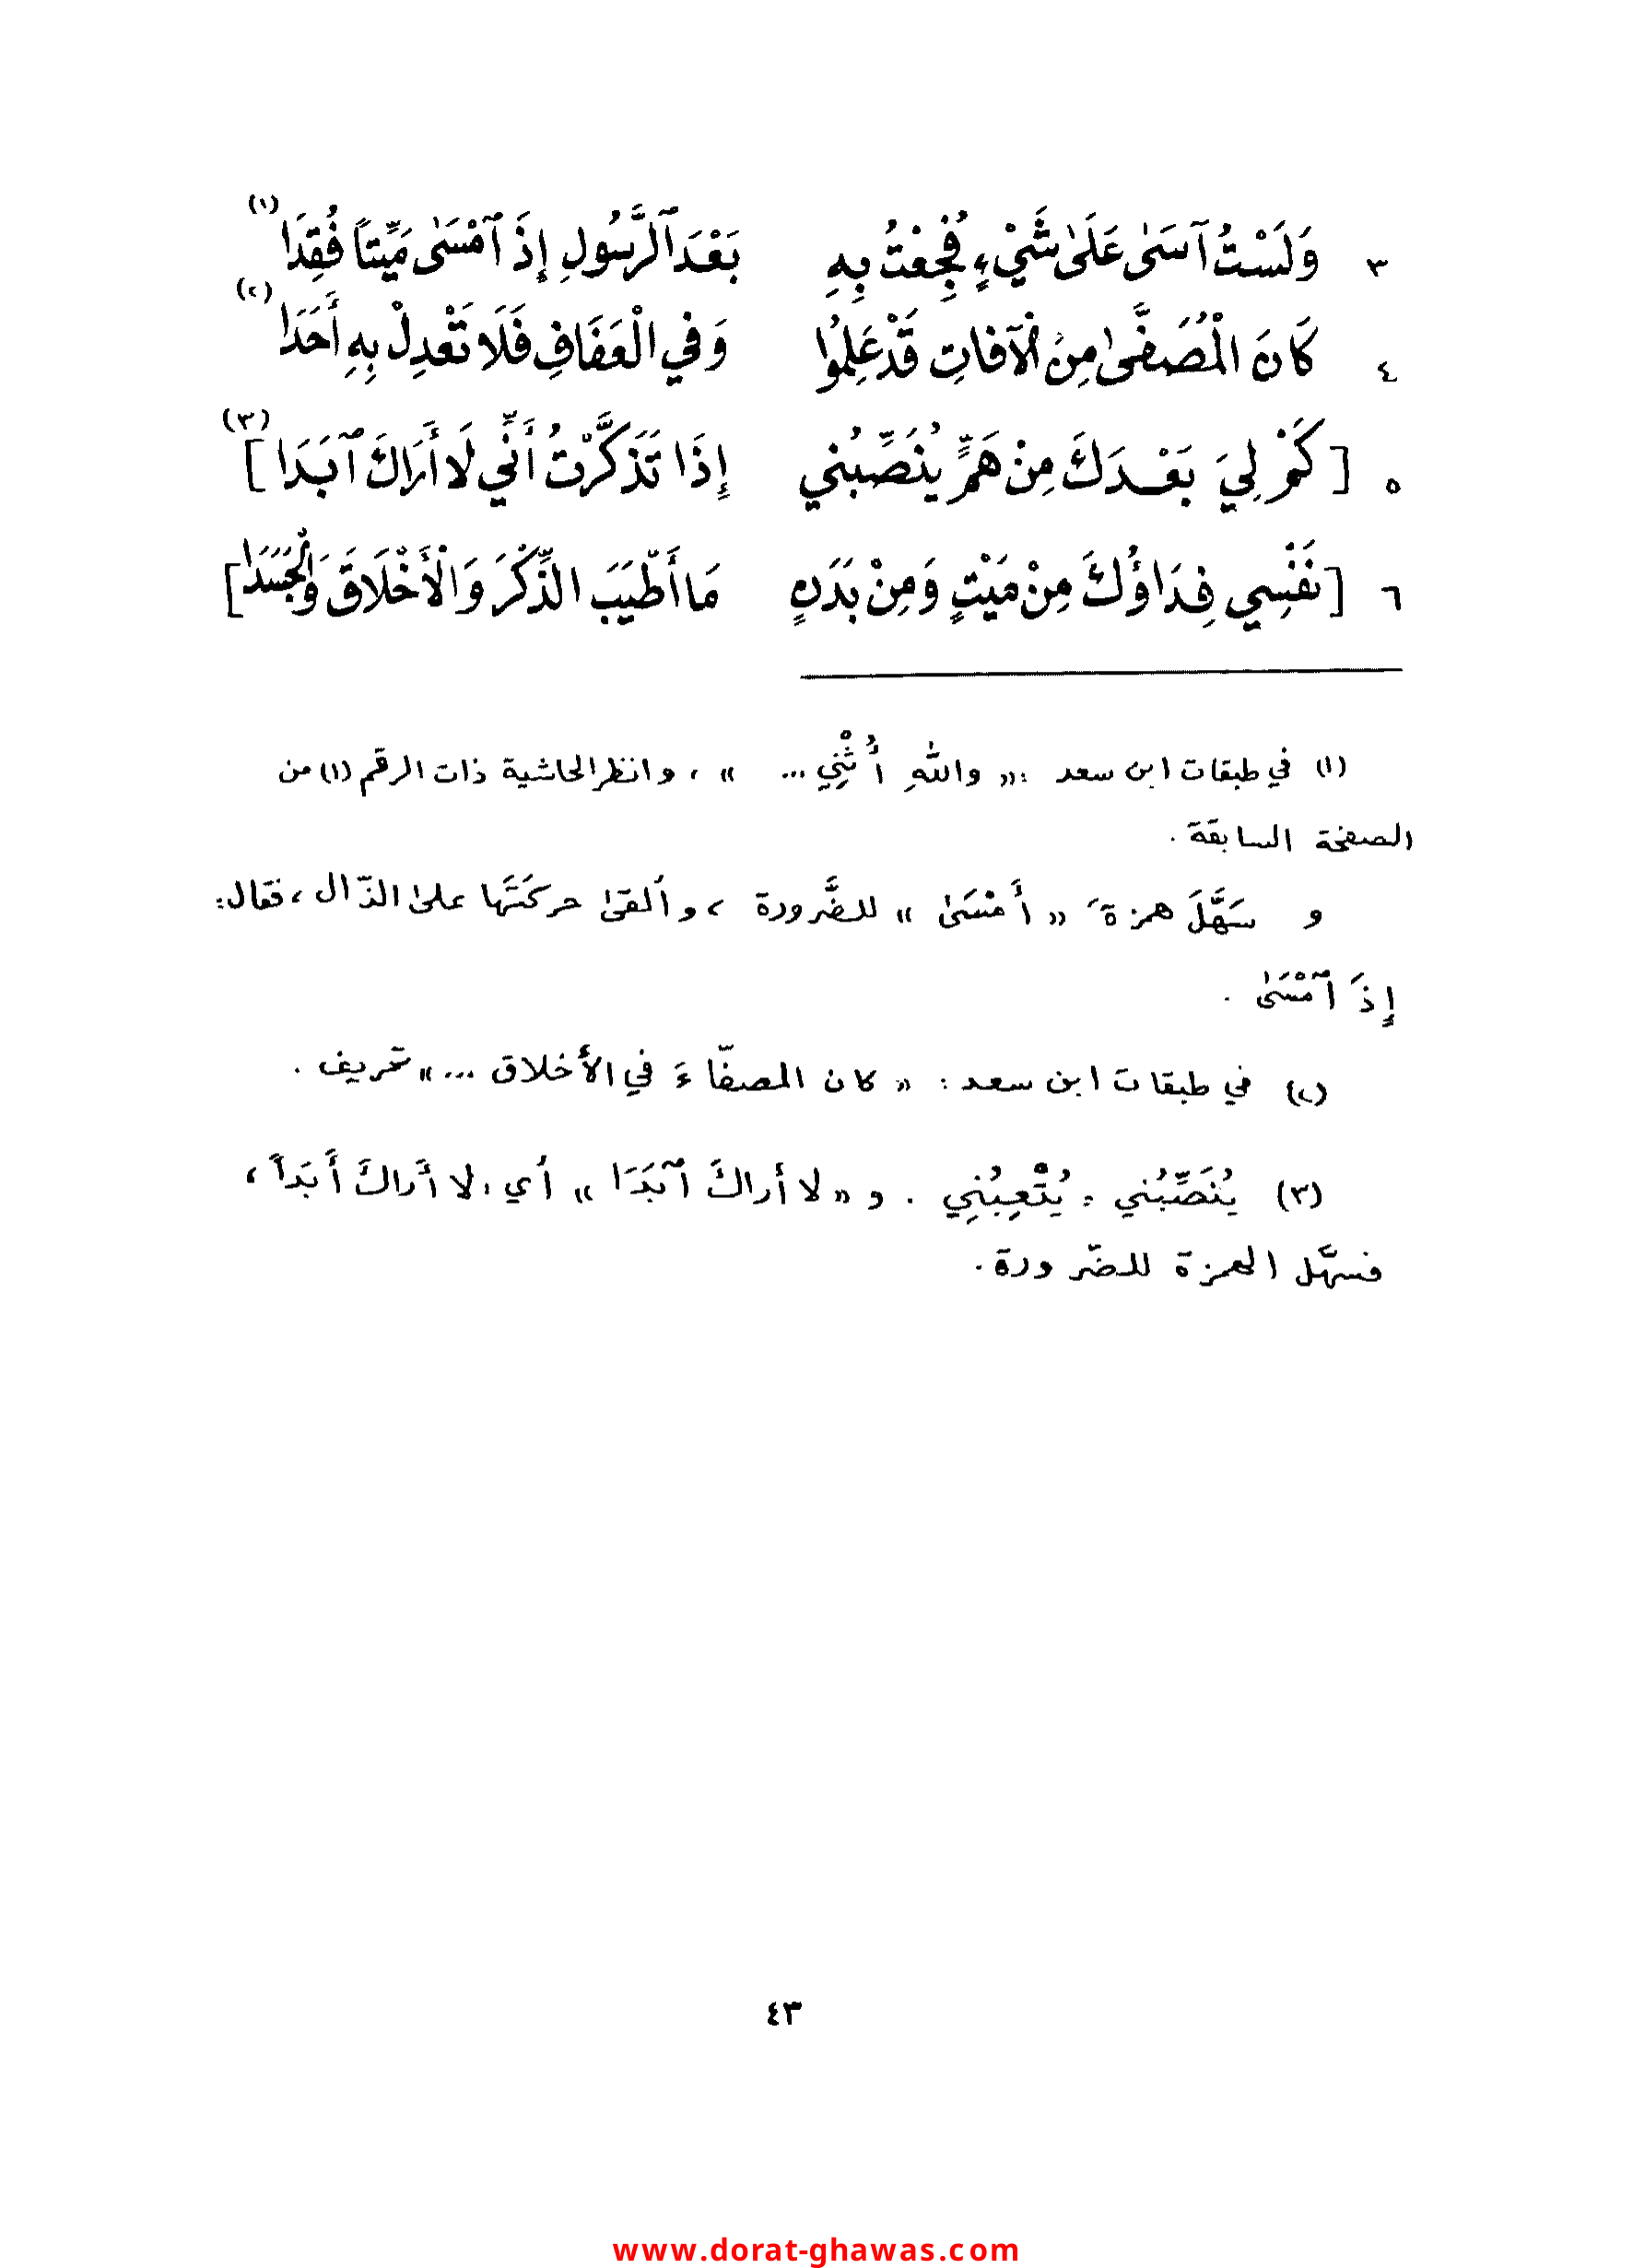 ٣ وَلَسْتُ آسَىٰ عَلَىٰ شَيْءٍ فُجِعْتُ بِهِ بَعْدَ ٱلرَّسُولِ إِذَ ٱمْسَىٰ مَيِّتاً فُقِدَا (١)
٤ كَانَ الْمُصَفَّىٰ مِنَ الْآفَاتِ قَدْ عَلِمُوا وَفِي الْعَفَافِ فَلَا تَعْدِلْ بِهِ أَحَدَا (٢)
٥ [كَمْ لِيَ بَعْدَكَ مِنْ هَمٍّ يُنَصِّبُنِي إِذَا تَذَكَّرْتُ أَنِّي لَا أَرَاكَ ٱبَدَا] (٣)
٦ [نَفْسِي فِدَاؤُكَ مِنْ مَيْتٍ وَمِنْ بَدَنٍ مَا أَطْيَبَ الذِّكْرَ وَالْأَخْلَاقَ وَالْجَسَدَا]
(١) في طبقات ابن سعد : « والله أُثْنِي ... » ، وانظر الحاشية ذات الرقم (١) من
الصفحة السابقة .
و سَهَّلَ همزةَ « أَمْسَىٰ » للضَّرورة ، وألقىٰ حركَتَها علىٰ الذّال ، فقال :
إِذَ ٱمْسَىٰ .
(٢) في طبقات ابن سعد : « كان المصفّاءَ في الأخلاق ... » تحريف .
(٣) يُنَصِّبُني : يُتْعِبُنِي . و « لا أراكَ ٱبَدَا » أي : لا أراكَ أَبَداً ،
فسهَّل الهمزة للضّرورة .
٤٣
www.dorat-ghawas.com